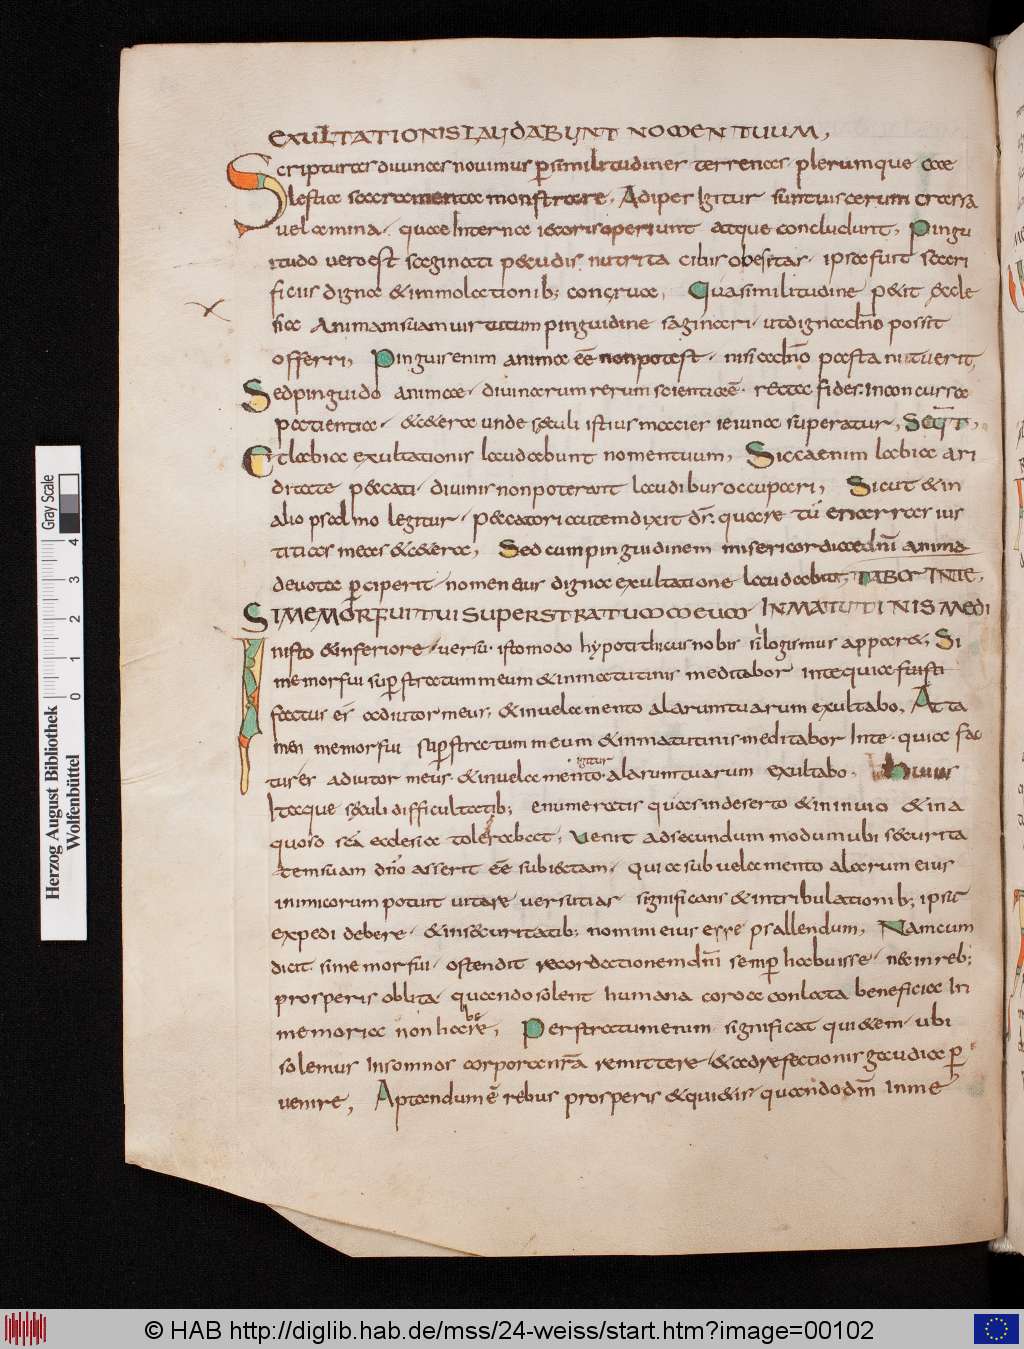 EXULTATIONIS LAUDABUNT NOMEN TUUM,
Scripturas divinas novimus p similitudines terrenas plerumque cae
lestia sacramenta monstrare. Adipes igitur sunt viscerum crassa
velamina, quae interna iecoris operiunt atque concludunt, Pingu
itudo vero est saginati pecudis nutrita cibis obesitas, ipsa fuit sacri
ficiis digna & immolationib; congrua, Qua similitudine petit eccle
sia animam suam virtutum pinguidine saginari, ut digna dno possit
offerri, Pinguis enim anima eē non potest, nisi a dno pasta nutuerit,
Sed pinguido animae, divinarum rerum scientia ē, recta fides, inconcussa
patientia, & cetera unde saeculi istius macies ieiuna superatur, SEQT,
Et labia exultationis laudabunt nomen tuum, Sicca enim labia ari
ditate peccati, divinis non poterant laudibus occupari, Sicut & in
alio psalmo legitur, peccatori autem dixit ds, quare tu enarras ius
titias meas & cetera, Sed cum pinguidinem misericordiae dni anima
devota pciperit, nomen eius digna exultatione laudabit,
SI MEMOR FUI TUI SUPER STRATUM MEUM IN MATUTINIS MEDI
In isto & inferiore versu, isto modo hypothicus nobis silogismus apparet, Si
memor fui sup stratum meum & in matutinis meditabor in te quia fuisti
factus es adiutor meus, & in velamento alarum tuarum exultabo, At ta
men memor fui sup stratum meum & in matutinis meditabor in te, quia fac
tus es adiutor meus, & in velamento alarum tuarum exultabo, Huius
igitur
itaque saeculi difficultatib; enumeratis quas in deserto & in invio & in a
quoso sca ecclesia tolerabat, Venit ad secundum modum ubi securita
tem suam dno asserit eē subiectam, Quia sub velamento alarum eius
inimicorum potuit vitare versutias, significans & in tribulationib; ipsu
expedi debere, & in securitatib; nomini eius esse psallendum, Nam cum
dicit, si memor fui, ostendit recordationem dni semp habuisse, nec in reb;
prosperis oblita, quando solent humana corda conlata beneficia in
memoria non habere, Per stratum enim significat quietem, ubi
solemus in somnos corpora nra remittere, & ad refectionis gaudia p
venire, Aptandum ē rebus prosperis & quietis, quando dm in me
Herzog August Bibliothek
Wolfenbüttel
0 1 2 3 4
Gray Scale
© HAB http://diglib.hab.de/mss/24-weiss/start.htm?image=00102